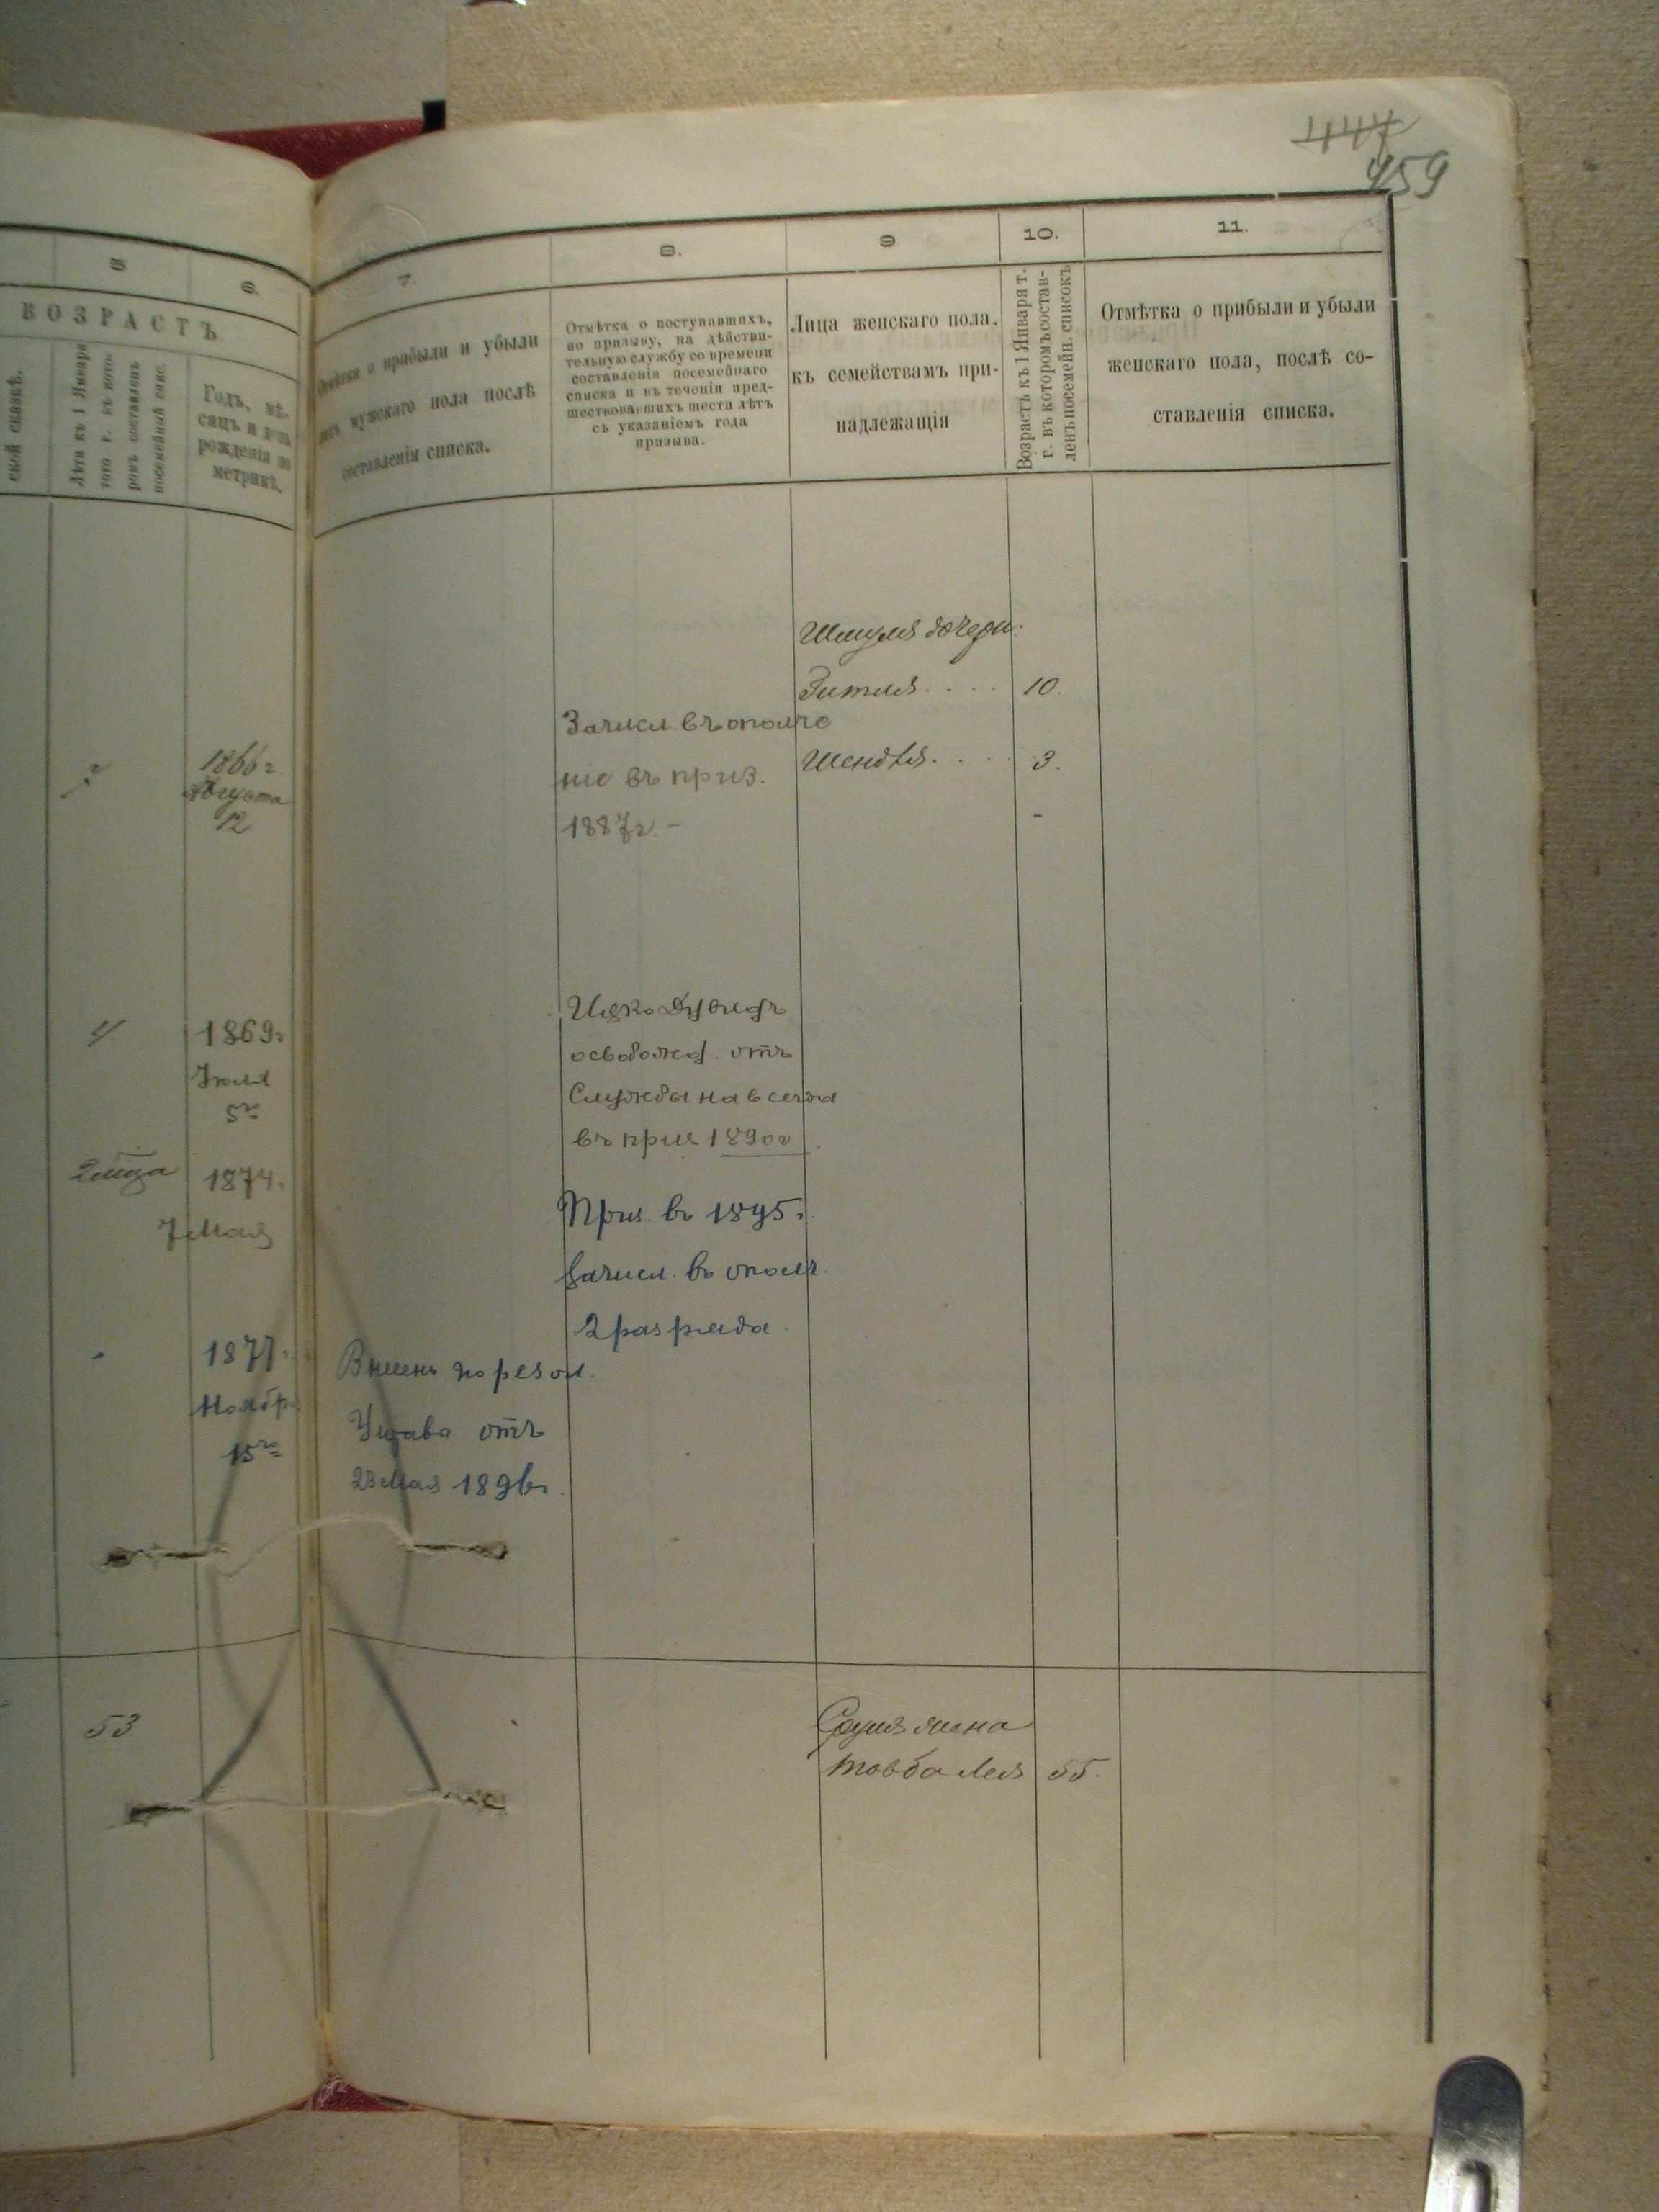 447
459
5
6.
7.
8.
9
10.
11.
ВОЗРАСТЪ
ской сказкѣ.
Лѣта къ 1 Января
того г. въ кото-
ромъ составленъ
посемейный спис.
Годъ, мѣ-
сяцъ и день
рожденія по
метрикѣ.
Отмѣтка о прибыли и убыли
мужскаго пола послѣ
составленія списка.
Отмѣтка о поступившихъ,
по призыву, на дѣйстви-
тельную службу со времени
составленія посемейнаго
списка и въ теченіи пред-
шествовавшихъ шести лѣтъ
съ указаніемъ года
призыва.
Лица женскаго пола,
къ семействамъ при-
надлежащія
Возрастъ къ 1 Января т.
г. въ которомъ состав-
ленъ посемейн. списокъ
Отмѣтка о прибыли и убыли
женскаго пола, послѣ со-
ставленія списка.
Шмуля дочери.
Гитля.... 10.
Шендля.... 3.
-
1866 г.
Августа
12
Зачисл. въ ополче
ніе въ приз.
1887 г. -
4
1869 г
Іюля
5го
Ицко
освобожд. отъ
Службы на всегда
въ приз 1890 г
2 мца
1874.
7 Мая
Приз. въ 1895 г.
Зачисл. въ ополч.
2 разряда.
1877 г.
Ноября
15го
по резол.
отъ
23 Мая 1896 г.
53
жена
Товба Лея 55.